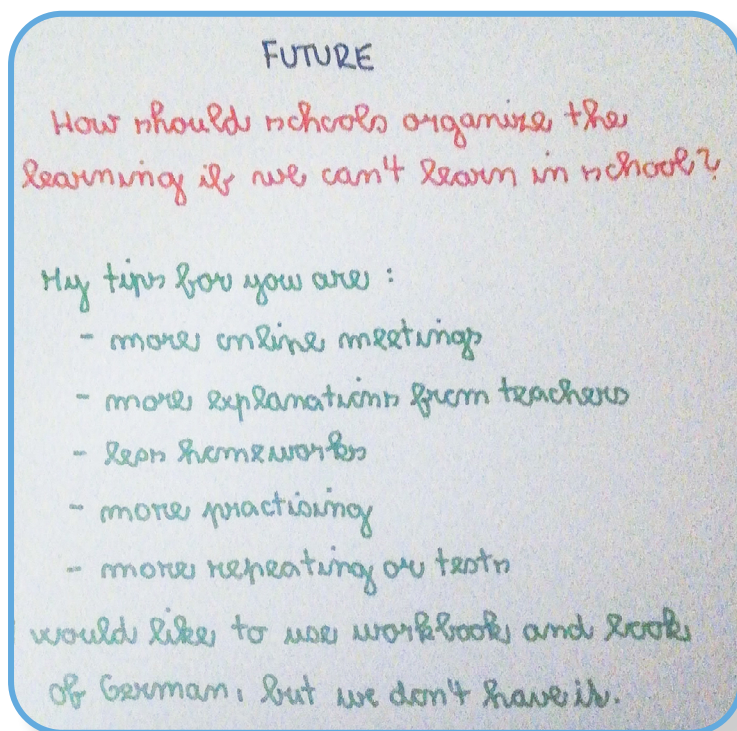 FUTURE
How should schools organize the
learning if we can't learn in school?
My tips for you are :
- more online meetings
- more explanations from teachers
- less homeworks
- more practising
- more repeating or tests
would like to use workbook and book
of German, but we don't have it.